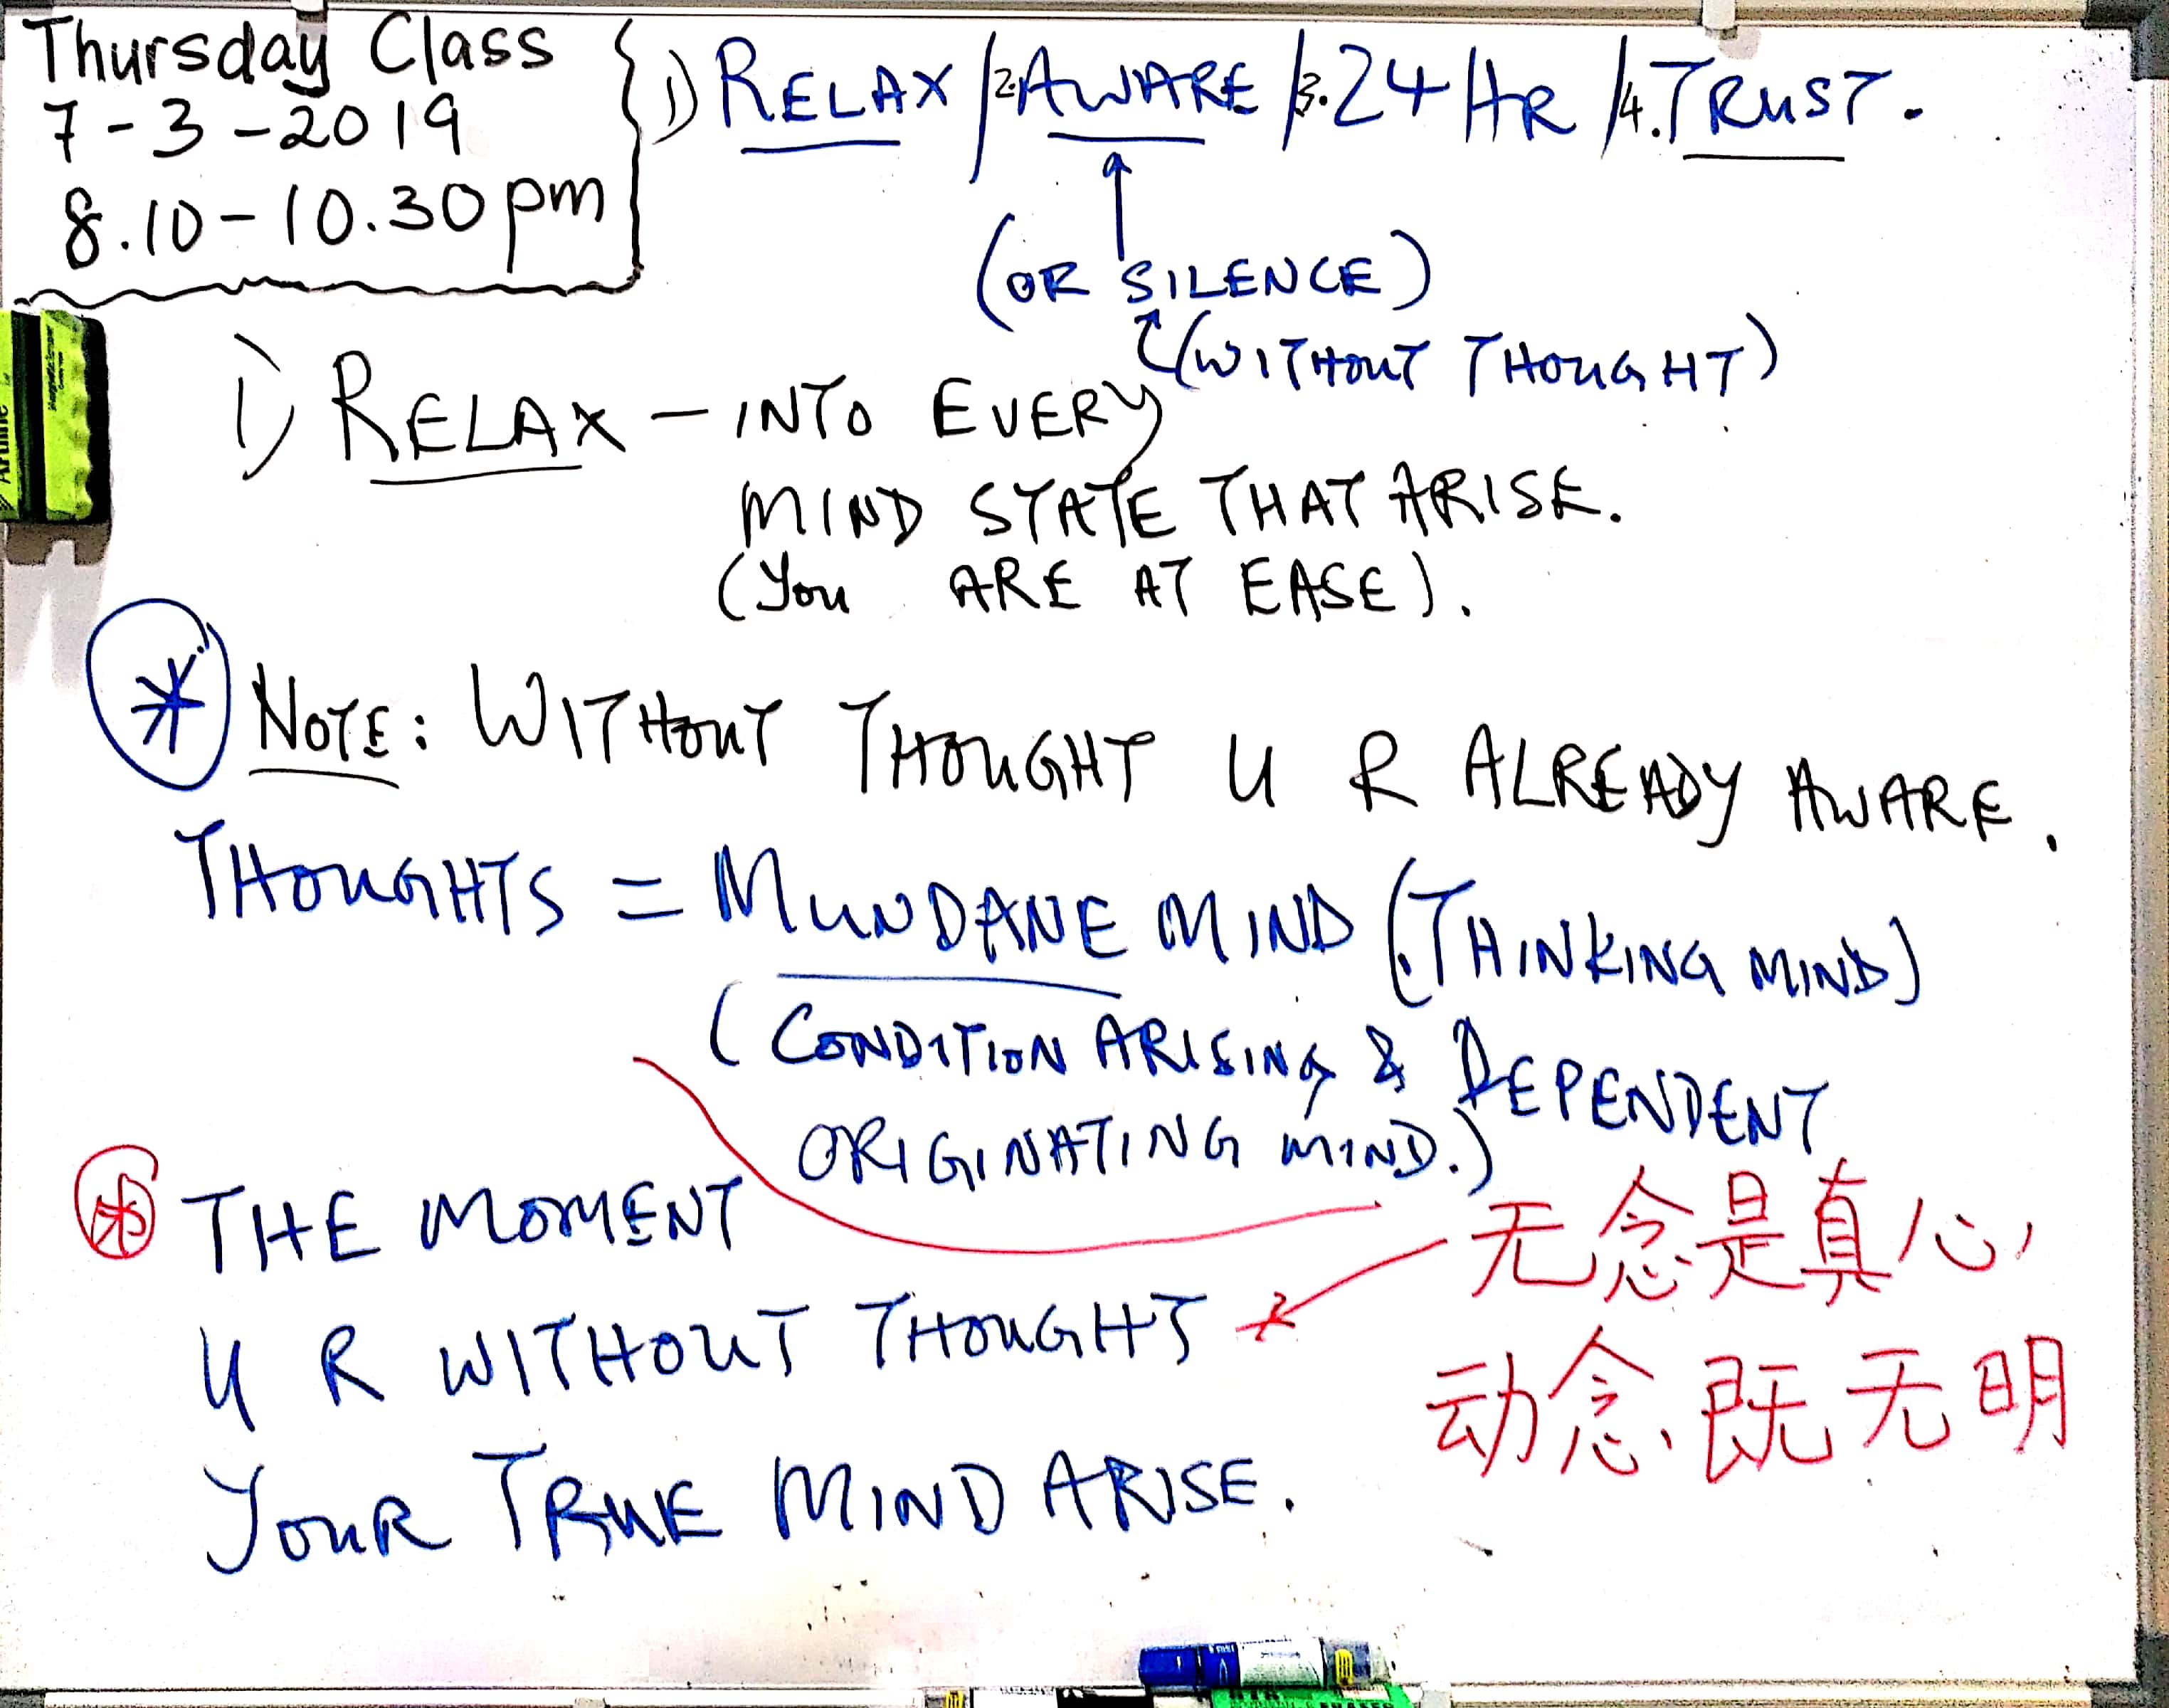 Thursday Class
7-3-2019
8.10-10.30pm
1) RELAX / 2. AWARE / 3. 24 HR / 4. TRUST.
(OR SILENCE)
(WITHOUT THOUGHT)
1) RELAX - INTO EVERY
MIND STATE THAT ARISE.
(YOU ARE AT EASE).
* NOTE: WITHOUT THOUGHT U R ALREADY AWARE.
THOUGHTS = MUNDANE MIND (THINKING MIND)
(CONDITION ARISING & DEPENDENT
ORIGINATING MIND.)
* THE MOMENT
U R WITHOUT THOUGHTS
YOUR TRUE MIND ARISE.
无念是真心,
动念、既无明